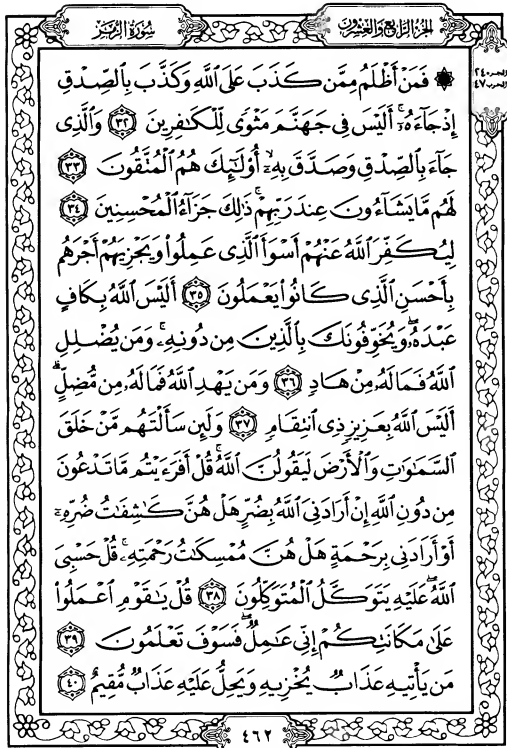 سُورَةُ الزُّمَرِ
الجزء الرابع والعشرون
الجزء ٢٤
الحزب ٤٧
۞ فَمَنْ أَظْلَمُ مِمَّن كَذَبَ عَلَى ٱللَّهِ وَكَذَّبَ بِٱلصِّدْقِ
إِذْ جَآءَهُۥٓ ۚ أَلَيْسَ فِى جَهَنَّمَ مَثْوًى لِّلْكَٰفِرِينَ ٣٢ وَٱلَّذِى
جَآءَ بِٱلصِّدْقِ وَصَدَّقَ بِهِۦٓ ۙ أُو۟لَٰٓئِكَ هُمُ ٱلْمُتَّقُونَ ٣٣
لَهُم مَّا يَشَآءُونَ عِندَ رَبِّهِمْ ۚ ذَٰلِكَ جَزَآءُ ٱلْمُحْسِنِينَ ٣٤
لِيُكَفِّرَ ٱللَّهُ عَنْهُمْ أَسْوَأَ ٱلَّذِى عَمِلُوا۟ وَيَجْزِيَهُمْ أَجْرَهُم
بِأَحْسَنِ ٱلَّذِى كَانُوا۟ يَعْمَلُونَ ٣٥ أَلَيْسَ ٱللَّهُ بِكَافٍ
عَبْدَهُۥ ۖ وَيُخَوِّفُونَكَ بِٱلَّذِينَ مِن دُونِهِۦ ۚ وَمَن يُضْلِلِ
ٱللَّهُ فَمَا لَهُۥ مِنْ هَادٍ ٣٦ وَمَن يَهْدِ ٱللَّهُ فَمَا لَهُۥ مِن مُّضِلٍّ ۗ
أَلَيْسَ ٱللَّهُ بِعَزِيزٍ ذِى ٱنتِقَامٍ ٣٧ وَلَئِن سَأَلْتَهُم مَّنْ خَلَقَ
ٱلسَّمَٰوَٰتِ وَٱلْأَرْضَ لَيَقُولُنَّ ٱللَّهُ ۚ قُلْ أَفَرَءَيْتُم مَّا تَدْعُونَ
مِن دُونِ ٱللَّهِ إِنْ أَرَادَنِىَ ٱللَّهُ بِضُرٍّ هَلْ هُنَّ كَٰشِفَٰتُ ضُرِّهِۦٓ
أَوْ أَرَادَنِى بِرَحْمَةٍ هَلْ هُنَّ مُمْسِكَٰتُ رَحْمَتِهِۦ ۚ قُلْ حَسْبِىَ
ٱللَّهُ ۖ عَلَيْهِ يَتَوَكَّلُ ٱلْمُتَوَكِّلُونَ ٣٨ قُلْ يَٰقَوْمِ ٱعْمَلُوا۟
عَلَىٰ مَكَانَتِكُمْ إِنِّى عَٰمِلٌ ۖ فَسَوْفَ تَعْلَمُونَ ٣٩
مَن يَأْتِيهِ عَذَابٌ يُخْزِيهِ وَيَحِلُّ عَلَيْهِ عَذَابٌ مُّقِيمٌ ٤٠
٤٦٢